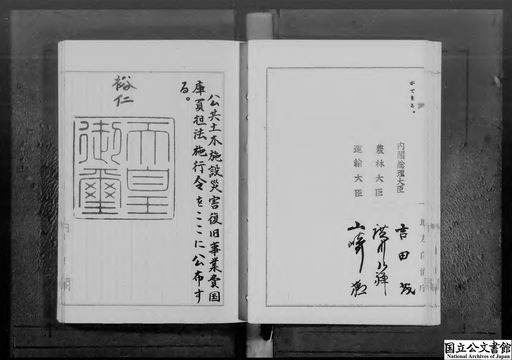 ができる。
内閣総理大臣 吉田茂
農林大臣 廣川弘禅
運輸大臣 山崎猛
公共土木施設災害復旧事業費国
庫負担法施行令をここに公布す
る。
裕仁
天皇
御璽
国立公文書館
National Archives of Japan